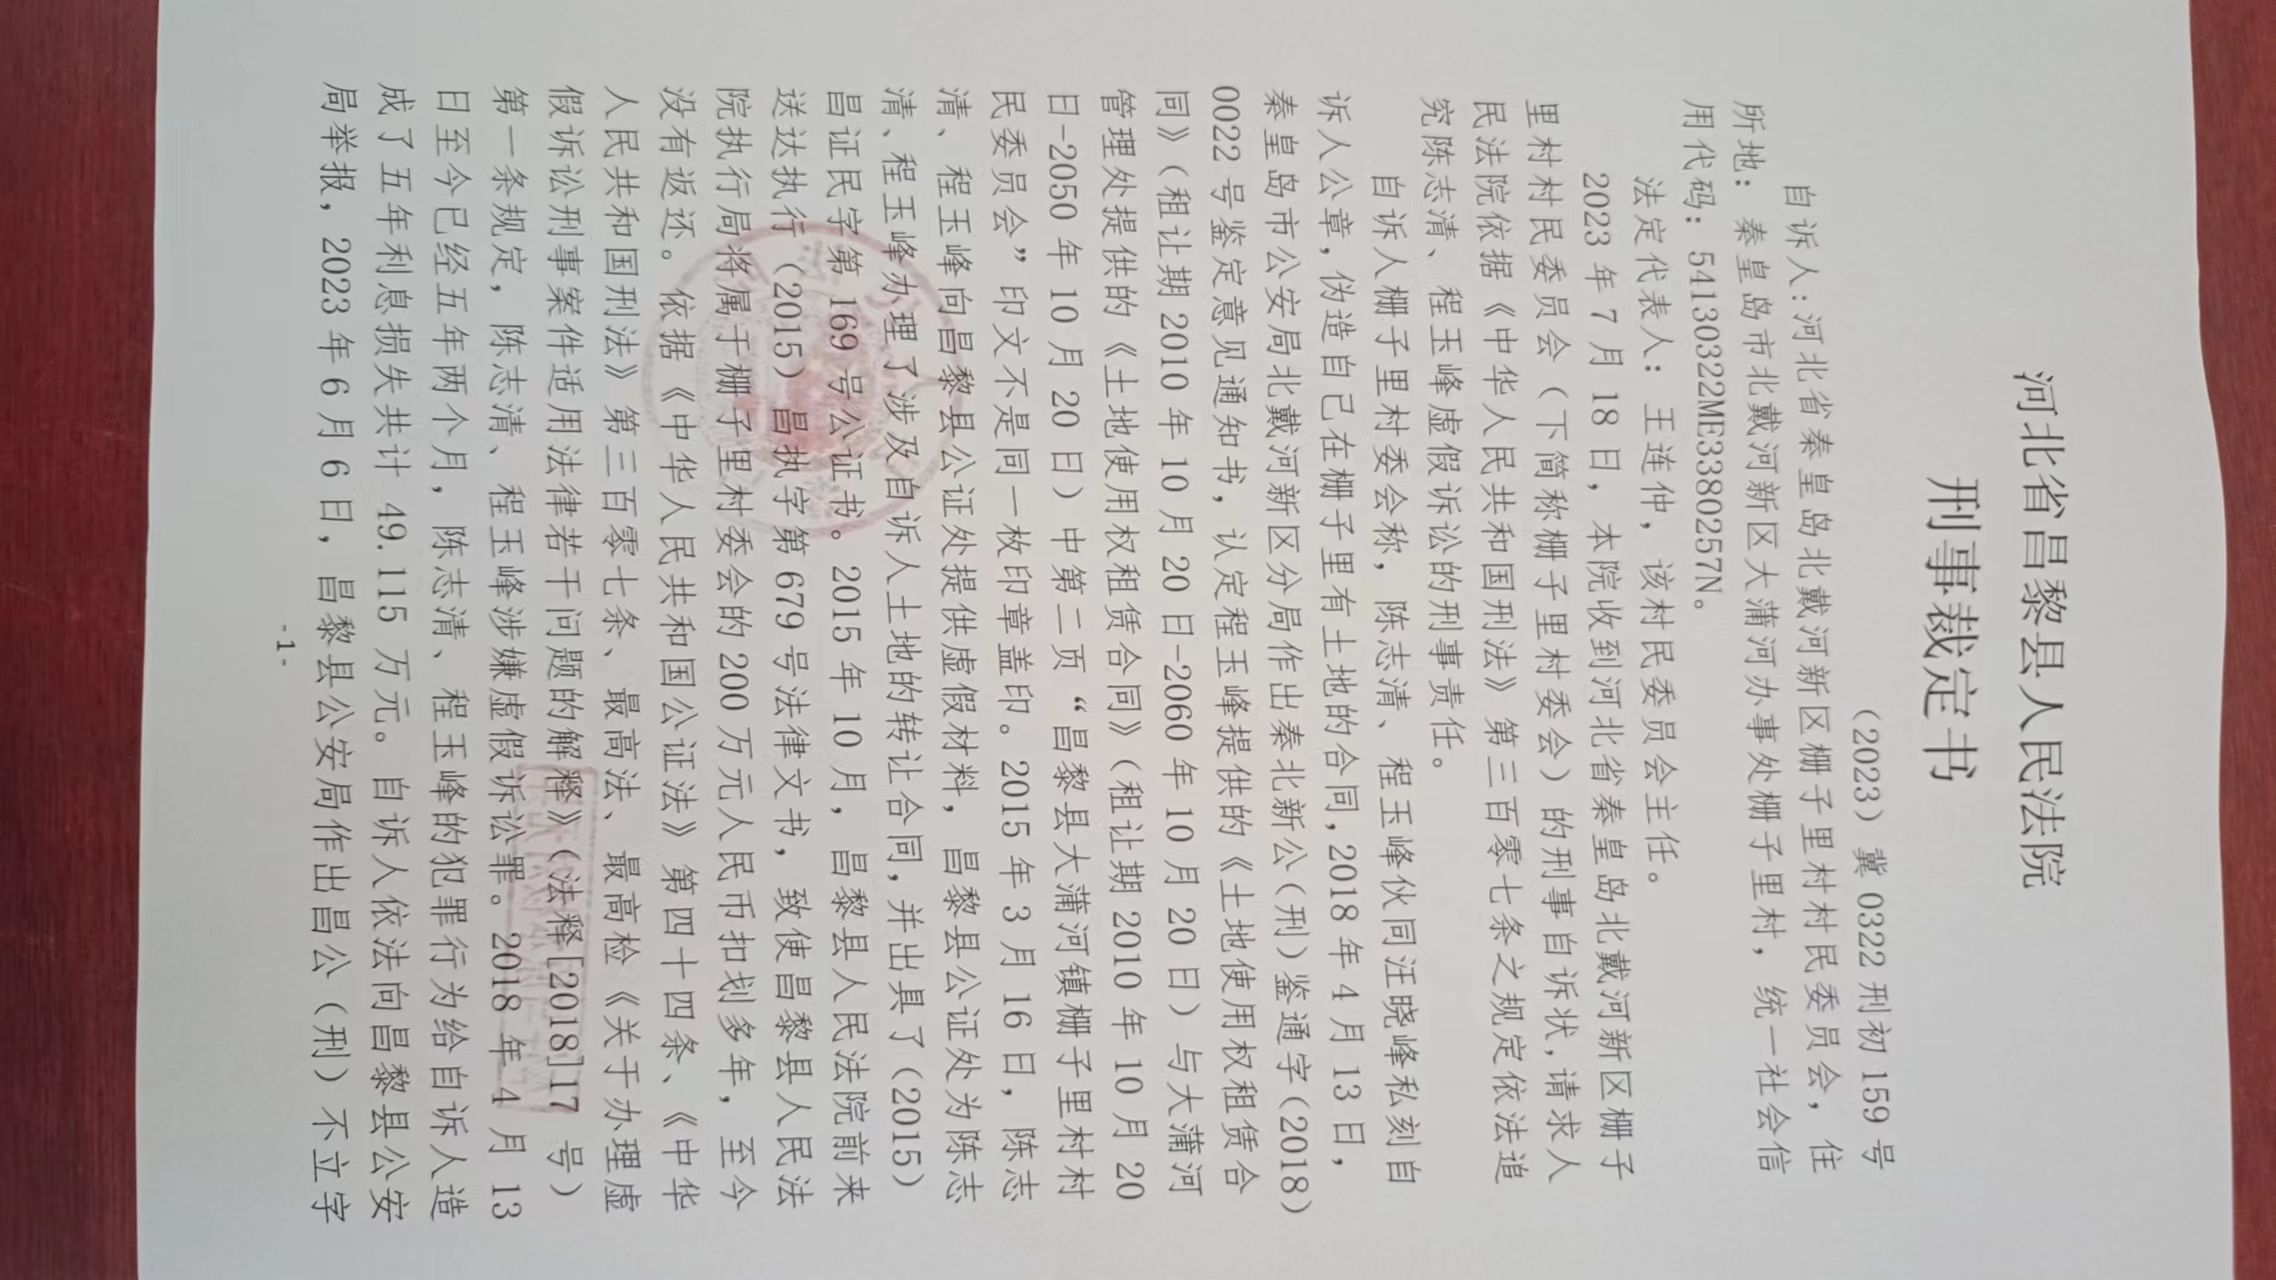 河北省昌黎县人民法院
刑事裁定书
（2023）冀 0322 刑初 159 号
自诉人：河北省秦皇岛北戴河新区栅子里村村民委员会，住
所地：秦皇岛市北戴河新区大蒲河办事处栅子里村，统一社会信
用代码：54130322ME3380257N。
法定代表人：王连仲，该村民委员会主任。
2023 年 7 月 18 日，本院收到河北省秦皇岛北戴河新区栅子
里村村民委员会（下简称栅子里村委会）的刑事自诉状，请求人
民法院依据《中华人民共和国刑法》第三百零七条之规定依法追
究陈志清、程玉峰虚假诉讼的刑事责任。
自诉人栅子里村委会称，陈志清、程玉峰伙同汪晓峰私刻自
诉人公章，伪造自己在栅子里有土地的合同，2018 年 4 月 13 日，
秦皇岛市公安局北戴河新区分局作出秦北新公（刑）鉴通字（2018）
0022 号鉴定意见通知书，认定程玉峰提供的《土地使用权租赁合
同》（租让期 2010 年 10 月 20 日-2060 年 10 月 20 日）与大蒲河
管理处提供的《土地使用权租赁合同》（租让期 2010 年 10 月 20
日-2050 年 10 月 20 日）中第二页“昌黎县大蒲河镇栅子里村村
民委员会”印文不是同一枚印章盖印。2015 年 3 月 16 日，陈志
清、程玉峰向昌黎县公证处提供虚假材料，昌黎县公证处为陈志
清、程玉峰办理了涉及自诉人土地的转让合同，并出具了（2015）
昌证民字第 169 号公证书。2015 年 10 月，昌黎县人民法院前来
送达执行（2015）昌执字第 679 号法律文书，致使昌黎县人民法
院执行局将属于栅子里村委会的 200 万元人民币扣划多年，至今
没有返还。依据《中华人民共和国公证法》第四十四条、《中华
人民共和国刑法》第三百零七条、最高法、最高检《关于办理虚
假诉讼刑事案件适用法律若干问题的解释》（法释[2018]17 号）
第一条规定，陈志清、程玉峰涉嫌虚假诉讼罪。2018 年 4 月 13
日至今已经五年两个月，陈志清、程玉峰的犯罪行为给自诉人造
成了五年利息损失共计 49.115 万元。自诉人依法向昌黎县公安
局举报，2023 年 6 月 6 日，昌黎县公安局作出昌公（刑）不立字
-1-